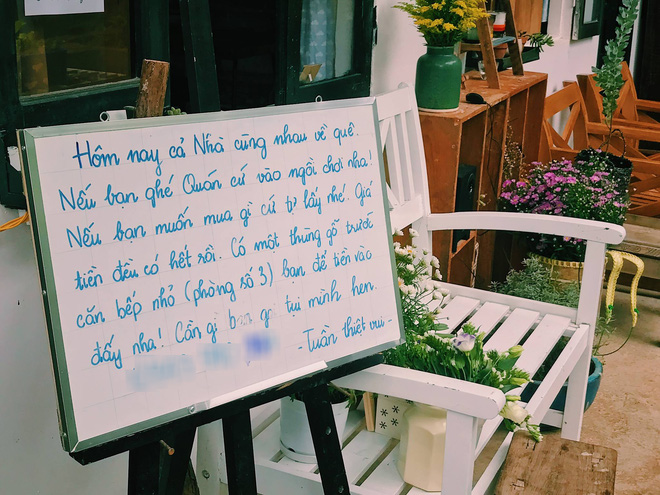 Hôm nay cả Nhà cùng nhau về quê.
Nếu bạn ghé Quán cứ vào ngồi chơi nha!
Nếu bạn muốn mua gì cứ tự lấy nhé! Giá
tiền đều có hết rồi. Có một thùng gỗ trước
căn bếp nhỏ (phòng số 3) bạn để tiền vào
đấy nha! Cần gì bạn gọi tui mình hen
- Tuần thiệt vui -